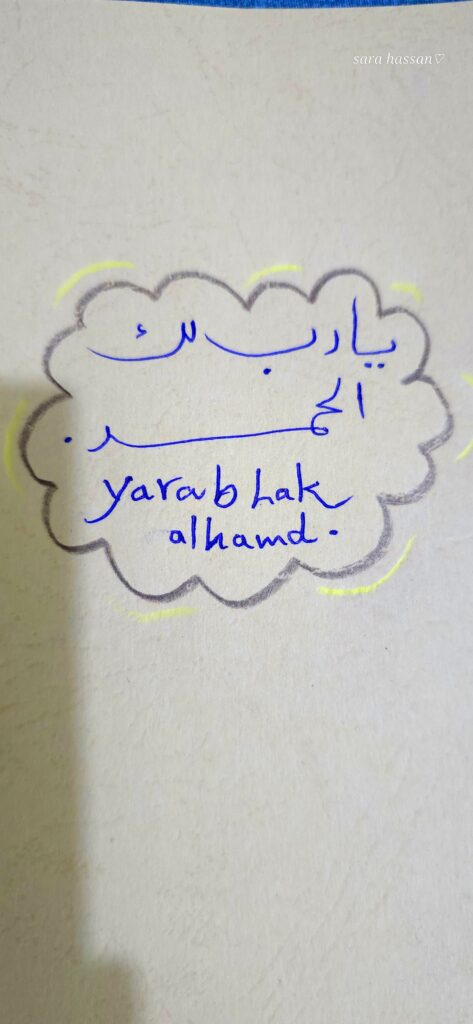 sara hassan♡
يارب لك
الحمد.
yarab lak
alhamd.